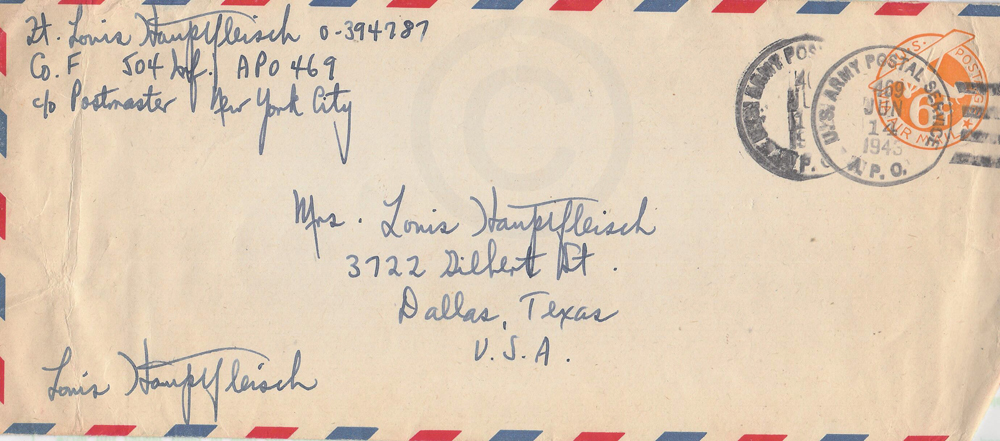 Lt. Louis Hauptfleisch 0-394787
Co. F 504 Inf. APO 469
c/o Postmaster New York City
U.S. ARMY POSTAL SERVICE
469
JUN
14
1943
A.P.O.
U.S. POSTAGE
6
AIR MAIL
Mrs. Louis Hauptfleisch
3722 Gilbert St.
Dallas, Texas
U.S.A.
Louis Hauptfleisch